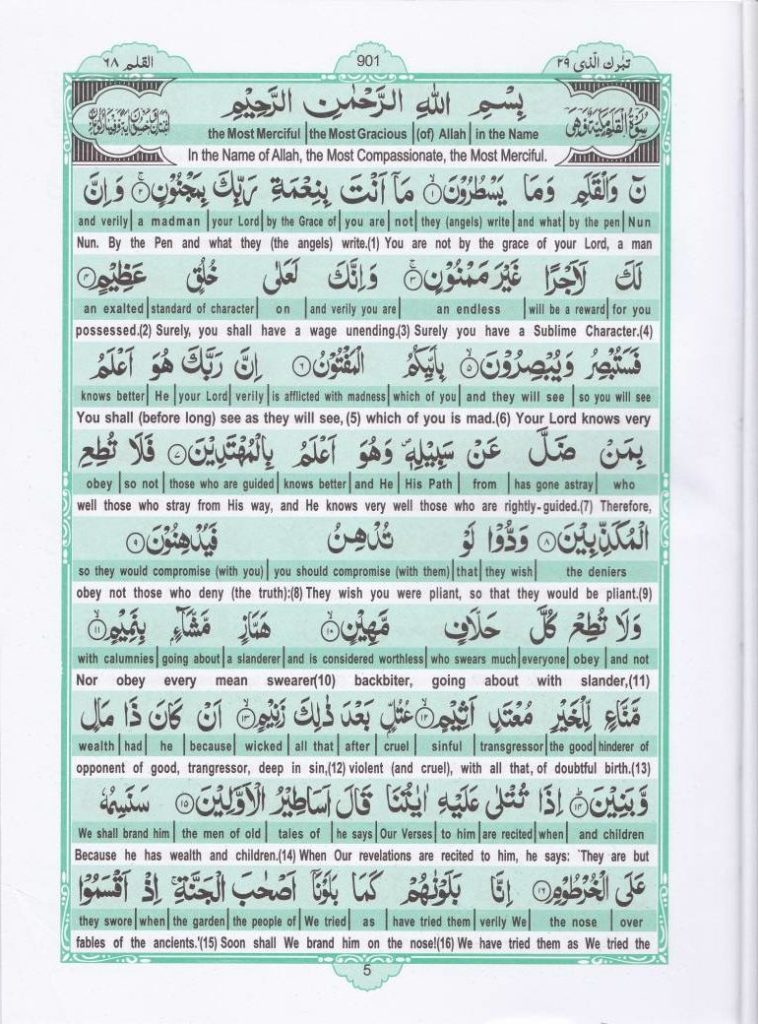 تبٰرك الّذی ٢٩
901
القلم ٦٨
بِسْمِ اللهِ الرَّحْمٰنِ الرَّحِيْمِ
the Most Merciful | the Most Gracious | (of) Allah | in the Name
In the Name of Allah, the Most Compassionate, the Most Merciful.
نٓ وَالْقَلَمِ وَمَا يَسْطُرُوْنَ ١ مَآ اَنْتَ بِنِعْمَةِ رَبِّكَ بِمَجْنُوْنٍ ٢ وَاِنَّ
and verily | a madman | your Lord | by the Grace of | you are | not | they (angels) write | and what | by the pen | Nun
Nun. By the Pen and what they (the angels) write.(1) You are not by the grace of your Lord, a man
لَكَ لَاَجْرًا غَيْرَ مَمْنُوْنٍ ٣ وَاِنَّكَ لَعَلٰى خُلُقٍ عَظِيْمٍ ٤
an exalted | standard of character | on | and verily you are | an endless | will be a reward | for you
possessed.(2) Surely, you shall have a wage unending.(3) Surely you have a Sublime Character.(4)
فَسَتُبْصِرُ وَيُبْصِرُوْنَ ٥ بِاَيِّكُمُ الْمَفْتُوْنُ ٦ اِنَّ رَبَّكَ هُوَ اَعْلَمُ
knows better | He | your Lord | verily | is afflicted with madness | which of you | and they will see | so you will see
You shall (before long) see as they will see, (5) which of you is mad.(6) Your Lord knows very
بِمَنْ ضَلَّ عَنْ سَبِيْلِهٖ وَهُوَ اَعْلَمُ بِالْمُهْتَدِيْنَ ٧ فَلَا تُطِعِ
obey | so not | those who are guided | knows better | and He | His Path | from | has gone astray | who
well those who stray from His way, and He knows very well those who are rightly-guided.(7) Therefore,
الْمُكَذِّبِيْنَ ٨ وَدُّوْا لَوْ تُدْهِنُ فَيُدْهِنُوْنَ ٩
so they would compromise (with you) | you should compromise (with them) | that | they wish | the deniers
obey not those who deny (the truth):(8) They wish you were pliant, so that they would be pliant.(9)
وَلَا تُطِعْ كُلَّ حَلَّافٍ مَّهِيْنٍ ١٠ هَمَّازٍ مَّشَّآءٍ بِنَمِيْمٍ ١١
with calumnies | going about | a slanderer | and is considered worthless | who swears much | everyone | obey | and not
Nor obey every mean swearer(10) backbiter, going about with slander,(11)
مَّنَّاعٍ لِّلْخَيْرِ مُعْتَدٍ اَثِيْمٍ ١٢ عُتُلٍّ بَعْدَ ذٰلِكَ زَنِيْمٍ ١٣ اَنْ كَانَ ذَا مَالٍ
wealth | had | he | because | wicked | all that | after | cruel | sinful | transgressor | the good | hinderer of
opponent of good, trangressor, deep in sin,(12) violent (and cruel), with all that, of doubtful birth.(13)
وَّبَنِيْنَ ١٤ اِذَا تُتْلٰى عَلَيْهِ اٰيٰتُنَا قَالَ اَسَاطِيْرُ الْاَوَّلِيْنَ ١٥ سَنَسِمُهٗ
We shall brand him | the men of old | tales of | he says | Our Verses | to him | are recited | when | and children
Because he has wealth and children.(14) When Our revelations are recited to him, he says: `They are but
عَلَى الْخُرْطُوْمِ ١٦ اِنَّا بَلَوْنٰهُمْ كَمَا بَلَوْنَآ اَصْحٰبَ الْجَنَّةِ اِذْ اَقْسَمُوْا
they swore | when | the garden | the people of | We tried | as | have tried them | verily We | the nose | over
fables of the ancients.'(15) Soon shall We brand him on the nose!(16) We have tried them as We tried the
5